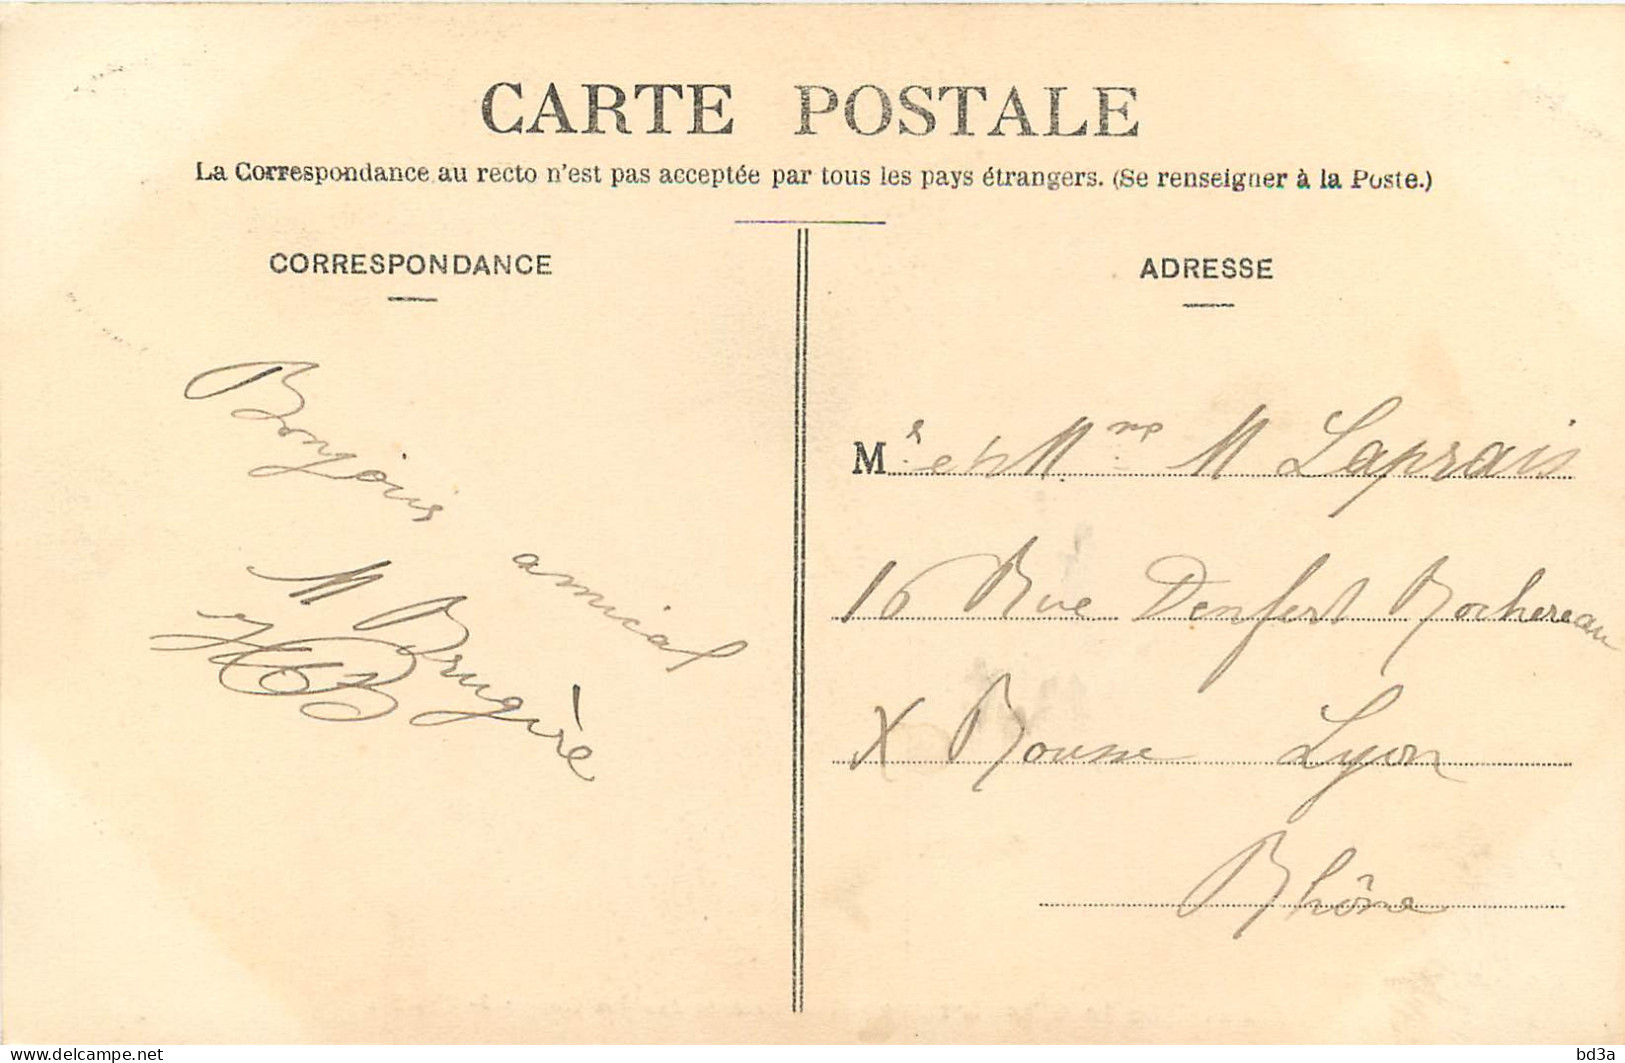 CARTE POSTALE
La Correspondance au recto n'est pas acceptée par tous les pays étrangers. (Se renseigner à la Poste.)
CORRESPONDANCE
Bonjour
amical
M Brugière
HB
ADRESSE
Mr et Mme M Laprais
16 Rue Denfert Rochereau
X Rousse Lyon
Rhône
delcampe.net
bd3a